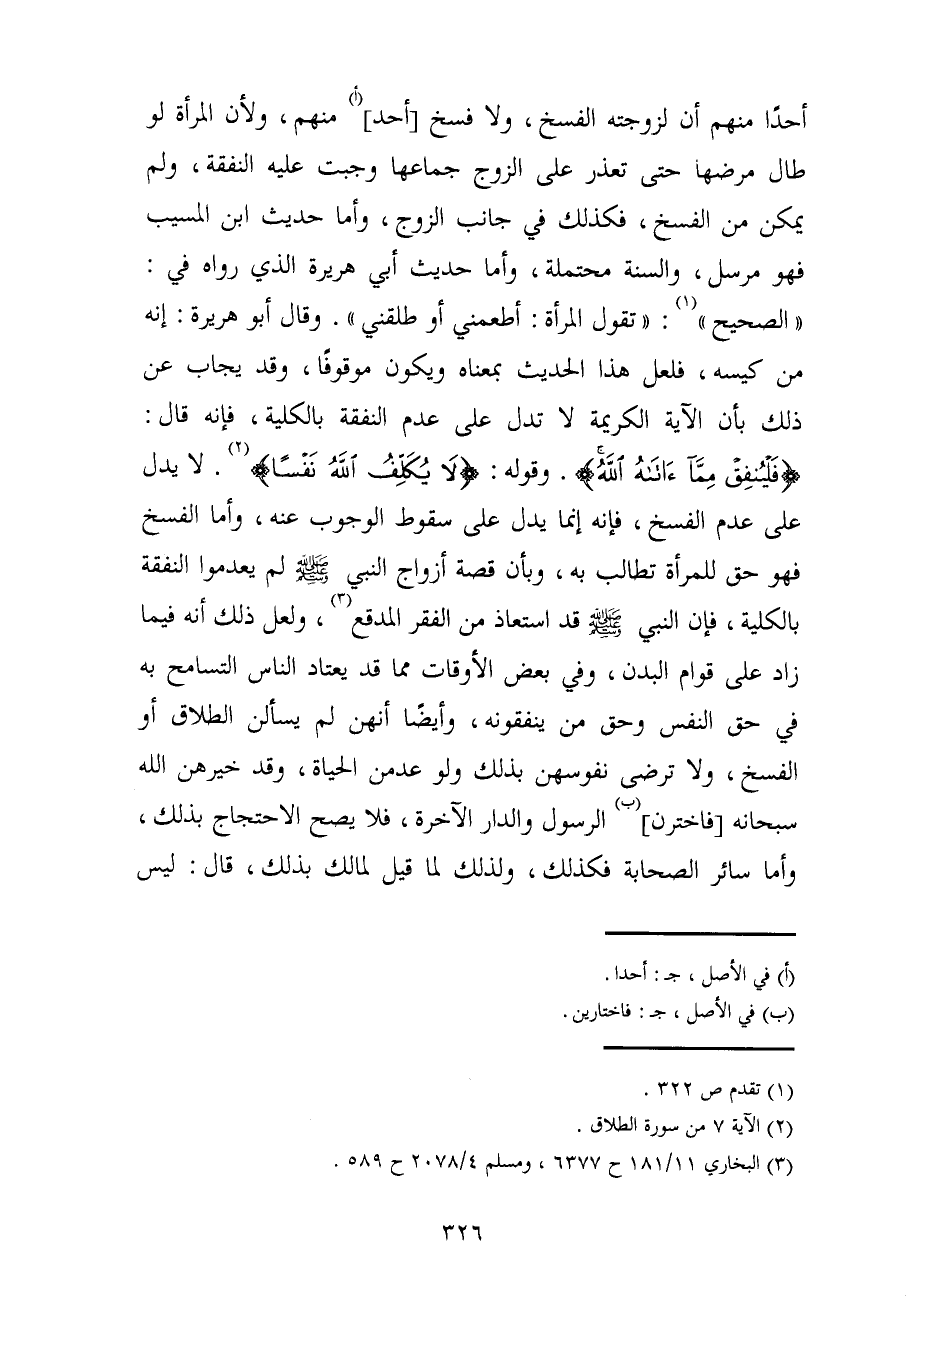 أحدًا منهم أن لزوجته الفسخ ، ولا فسخ [أحد](أ) منهم ، ولأن المرأة لو
طال مرضها حتى تعذر على الزوج جماعها وجبت عليه النفقة ، ولم
يمكن من الفسخ ، فكذلك في جانب الزوج ، وأما حديث ابن المسيب
فهو مرسل ، والسنة محتملة ، وأما حديث أبي هريرة الذي رواه في :
« الصحيح »(١) : « تقول المرأة : أطعمني أو طلقني » . وقال أبو هريرة : إنه
من كيسه ، فلعل هذا الحديث بمعناه ويكون موقوفًا ، وقد يجاب عن
ذلك بأن الآية الكريمة لا تدل على عدم النفقة بالكلية ، فإنه قال :
﴿فَلْيُنفِقْ مِمَّآ ءَاتَىٰهُ ٱللَّهُ﴾ . وقوله : ﴿لَا يُكَلِّفُ ٱللَّهُ نَفْسًا﴾(٢) . لا يدل
على عدم الفسخ ، فإنه إنما يدل على سقوط الوجوب عنه ، وأما الفسخ
فهو حق للمرأة تطالب به ، وبأن قصة أزواج النبي ﷺ لم يعدموا النفقة
بالكلية ، فإن النبي ﷺ قد استعاذ من الفقر المدقع(٣) ، ولعل ذلك أنه فيما
زاد على قوام البدن ، وفي بعض الأوقات مما قد يعتاد الناس التسامح به
في حق النفس وحق من ينفقونه ، وأيضًا أنهن لم يسألن الطلاق أو
الفسخ ، ولا ترضى نفوسهن بذلك ولو عدمن الحياة ، وقد خيرهن الله
سبحانه [فاخترن](ب) الرسول والدار الآخرة ، فلا يصح الاحتجاج بذلك ،
وأما سائر الصحابة فكذلك ، ولذلك لما قيل لمالك بذلك ، قال : ليس
(أ) في الأصل ، جـ : أحدا .
(ب) في الأصل ، جـ : فاختارين .
(١) تقدم ص ٣٢٢ .
(٢) الآية ٧ من سورة الطلاق .
(٣) البخاري ١٨١/١١ ح ٦٣٧٧ ، ومسلم ٢٠٧٨/٤ ح ٥٨٩ .
٣٢٦